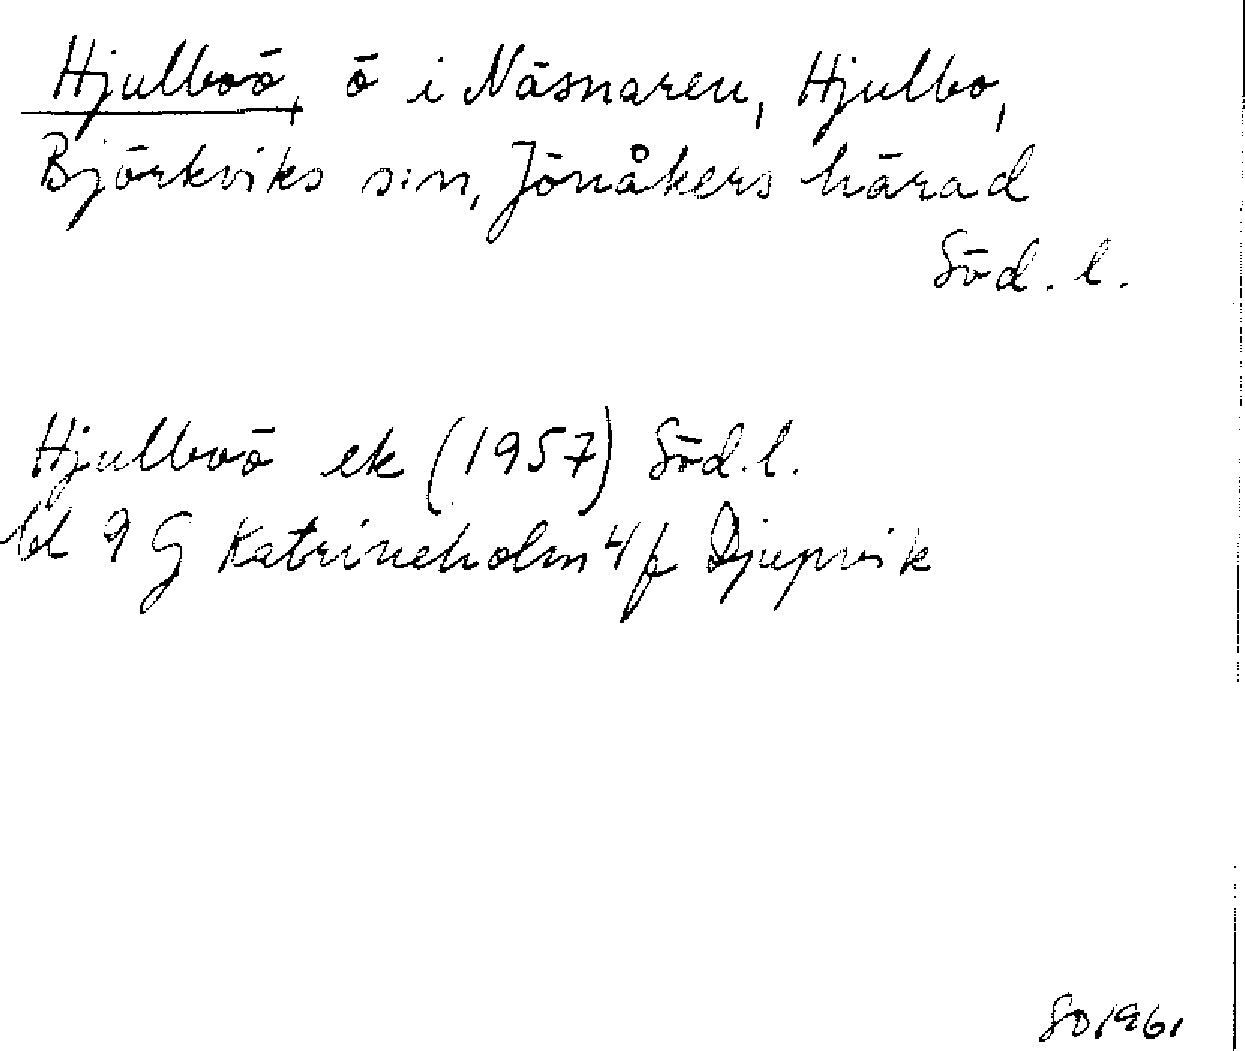 Hjulboö, ö i Näsnaren, Hjulbo,
Björkviks s:n, Jönåkers härad
Söd. l.
Hjulboö ek (1957) Söd. l.
bl 9 G Katrineholm 4f Djupvik
SO 1961